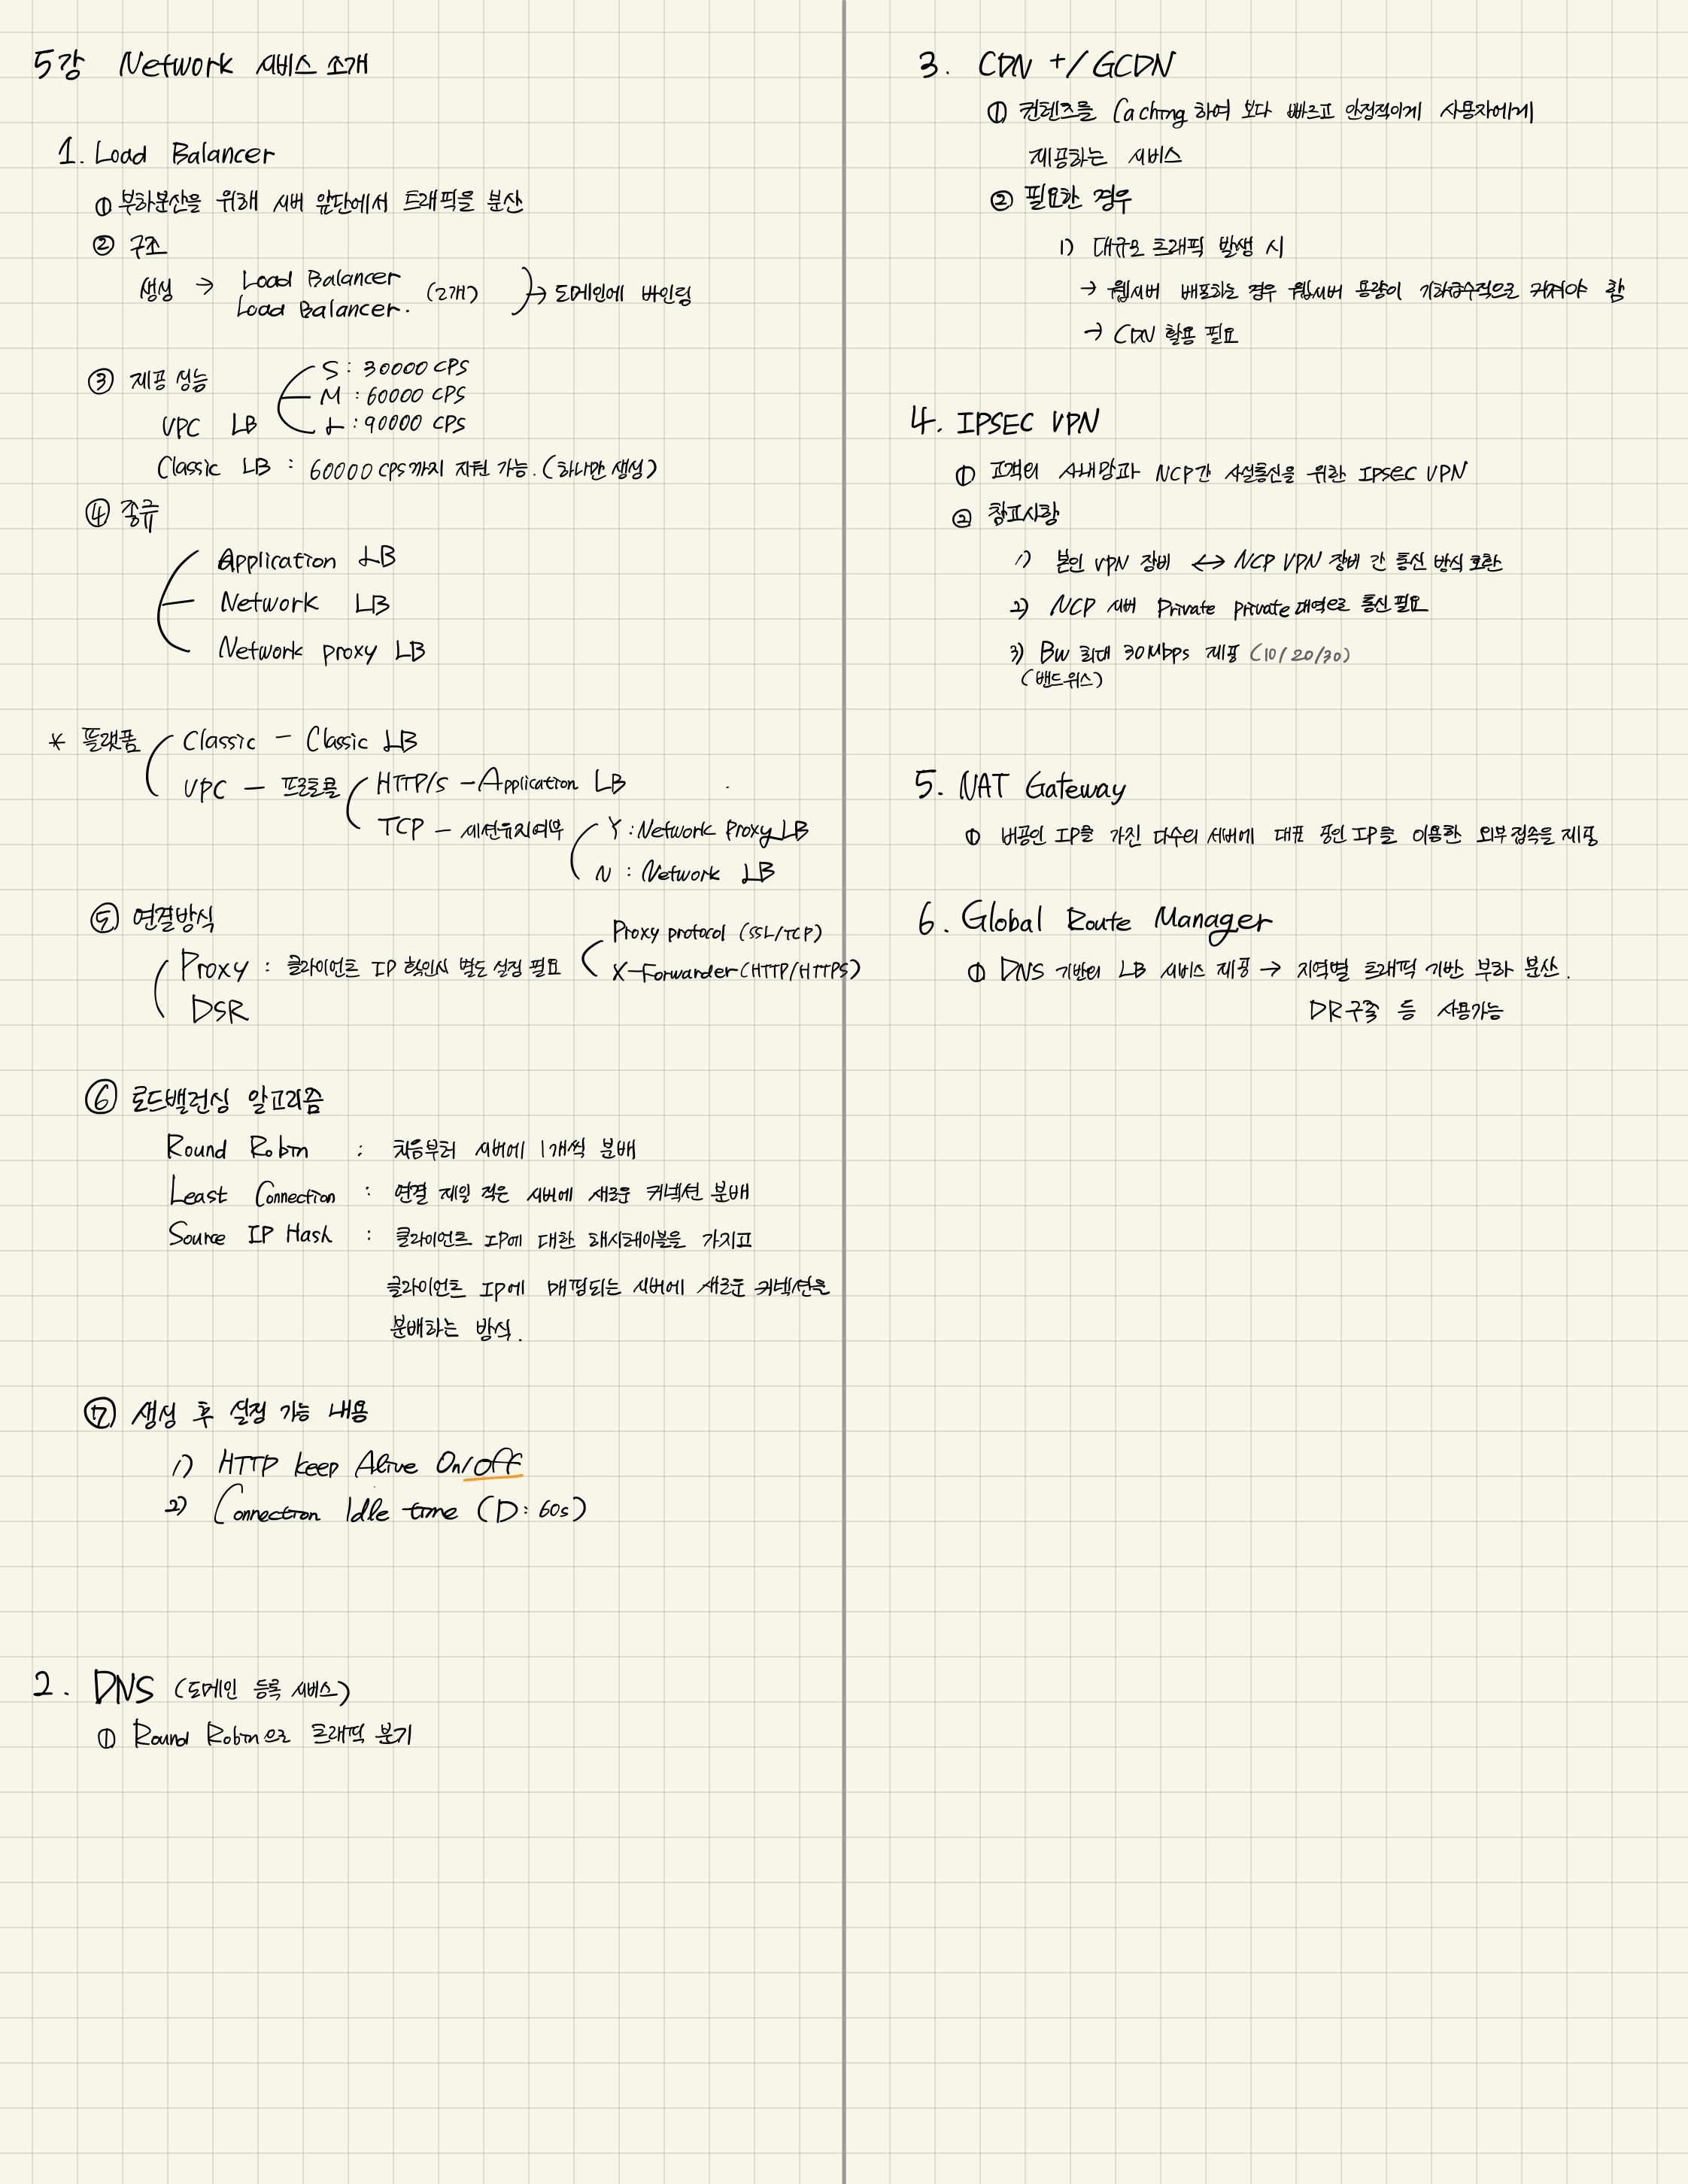 5강 Network 서비스 소개
1. Load Balancer
① 부하분산을 위해 서버 앞단에서 트래픽을 분산
② 구조
생성 → Load Balancer
Load Balancer. (2개) → 도메인에 바인딩
③ 제공 성능
VPC LB
S : 30000 CPS
M : 60000 CPS
L : 90000 CPS
Classic LB : 60000 CPS까지 지원 가능. (하나만 생성)
④ 종류
Application LB
Network LB
Network proxy LB
* 플랫폼
Classic - Classic LB
VPC - 프로토콜
HTTP/S - Application LB
TCP - 세션유지여부
Y : Network Proxy LB
N : Network LB
⑤ 연결방식
Proxy : 클라이언트 IP 확인시 별도 설정 필요
Proxy protocol (SSL/TCP)
X-Forwarder (HTTP/HTTPS)
DSR
⑥ 로드밸런싱 알고리즘
Round Robin : 처음부터 서버에 1개씩 분배
Least Connection : 연결 제일 적은 서버에 새로운 커넥션 분배
Source IP Hash : 클라이언트 IP에 대한 해시테이블을 가지고
클라이언트 IP에 매핑되는 서버에 새로운 커넥션을
분배하는 방식.
⑦ 생성 후 설정 가능 내용
1) HTTP keep Alive On/off
2) Connection Idle time (D: 60s)
2. DNS (도메인 등록 서비스)
① Round Robin으로 트래픽 분기
3. CDN +/GCDN
① 컨텐츠를 Caching 하여 보다 빠르고 안정적이게 사용자에게
제공하는 서비스
② 필요한 경우
1) 대규모 트래픽 발생 시
→ 웹서버 배포하는 경우 웹서버 용량이 기하급수적으로 커져야 함
→ CDN 활용 필요
4. IPSEC VPN
① 고객의 사내망과 NCP간 사설통신을 위한 IPSEC VPN
② 참고사항
1) 본인 VPN 장비 ↔ NCP VPN 장비 간 통신 방식 호환
2) NCP 서버 Private private 대역으로 통신 필요
3) BW 최대 30Mbps 제공 (10/20/30)
(밴드위스)
5. NAT Gateway
① 비공인 IP를 가진 다수의 서버에 대표 공인 IP를 이용한 외부 접속을 제공
6. Global Route Manager
① DNS 기반의 LB 서비스 제공 → 지역별 트래픽 기반 부하 분산.
DR구축 등 사용가능